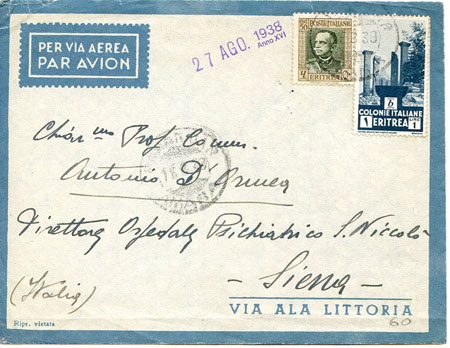 PER VIA AEREA
PAR AVION
27 AGO. 1938
Anno XVI
POSTE ITALIANE
ERITREA
COLONIE ITALIANE
1 1
ERITREA
Chiar.mo Prof. Comm.
Antonio D'Ormea
Direttore Ospedale Psichiatrico S. Niccolò
- Siena -
(Italia)
VIA ALA LITTORIA
Ripr. vietata
60